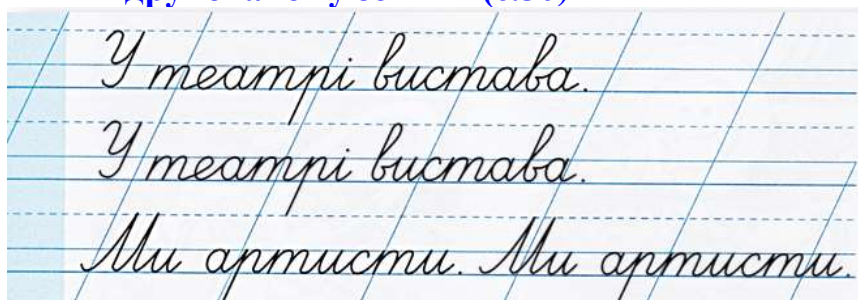 У театрі вистава.
У театрі вистава.
Ми артисти. Ми артисти.